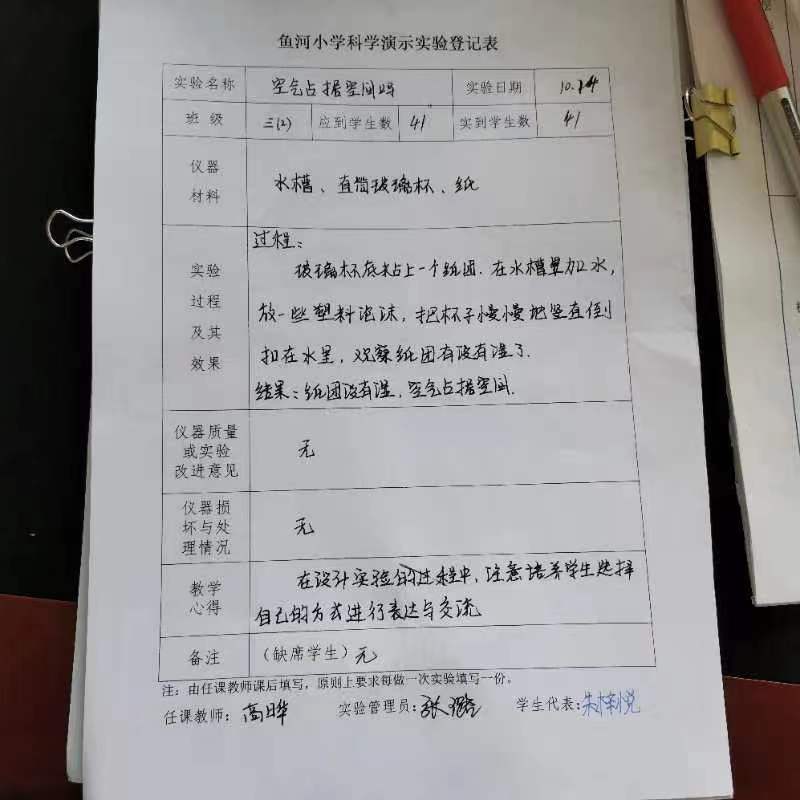 鱼河小学科学演示实验登记表
实验名称 空气占据空间吗 实验日期 10.14
班 级 三(2) 应到学生数 41 实到学生数 41
仪器
材料
水槽、直筒玻璃杯、纸
过程:
实验
过程
及其
效果
玻璃杯底粘上一个纸团.在水槽里加水,
放一些塑料泡沫,把杯子慢慢地竖直倒
扣在水里,观察纸团有没有湿了.
结果:纸团没有湿,空气占据空间.
仪器质量
或实验
改进意见
无
仪器损
坏与处
理情况
无
教学
心得
在设计实验的过程中,注意培养学生选择
自己的方式进行表达与交流
备注 (缺席学生)无
注:由任课教师课后填写,原则上要求每做一次实验填写一份。
任课教师:高晔 实验管理员:张璐 学生代表:朱梓悦